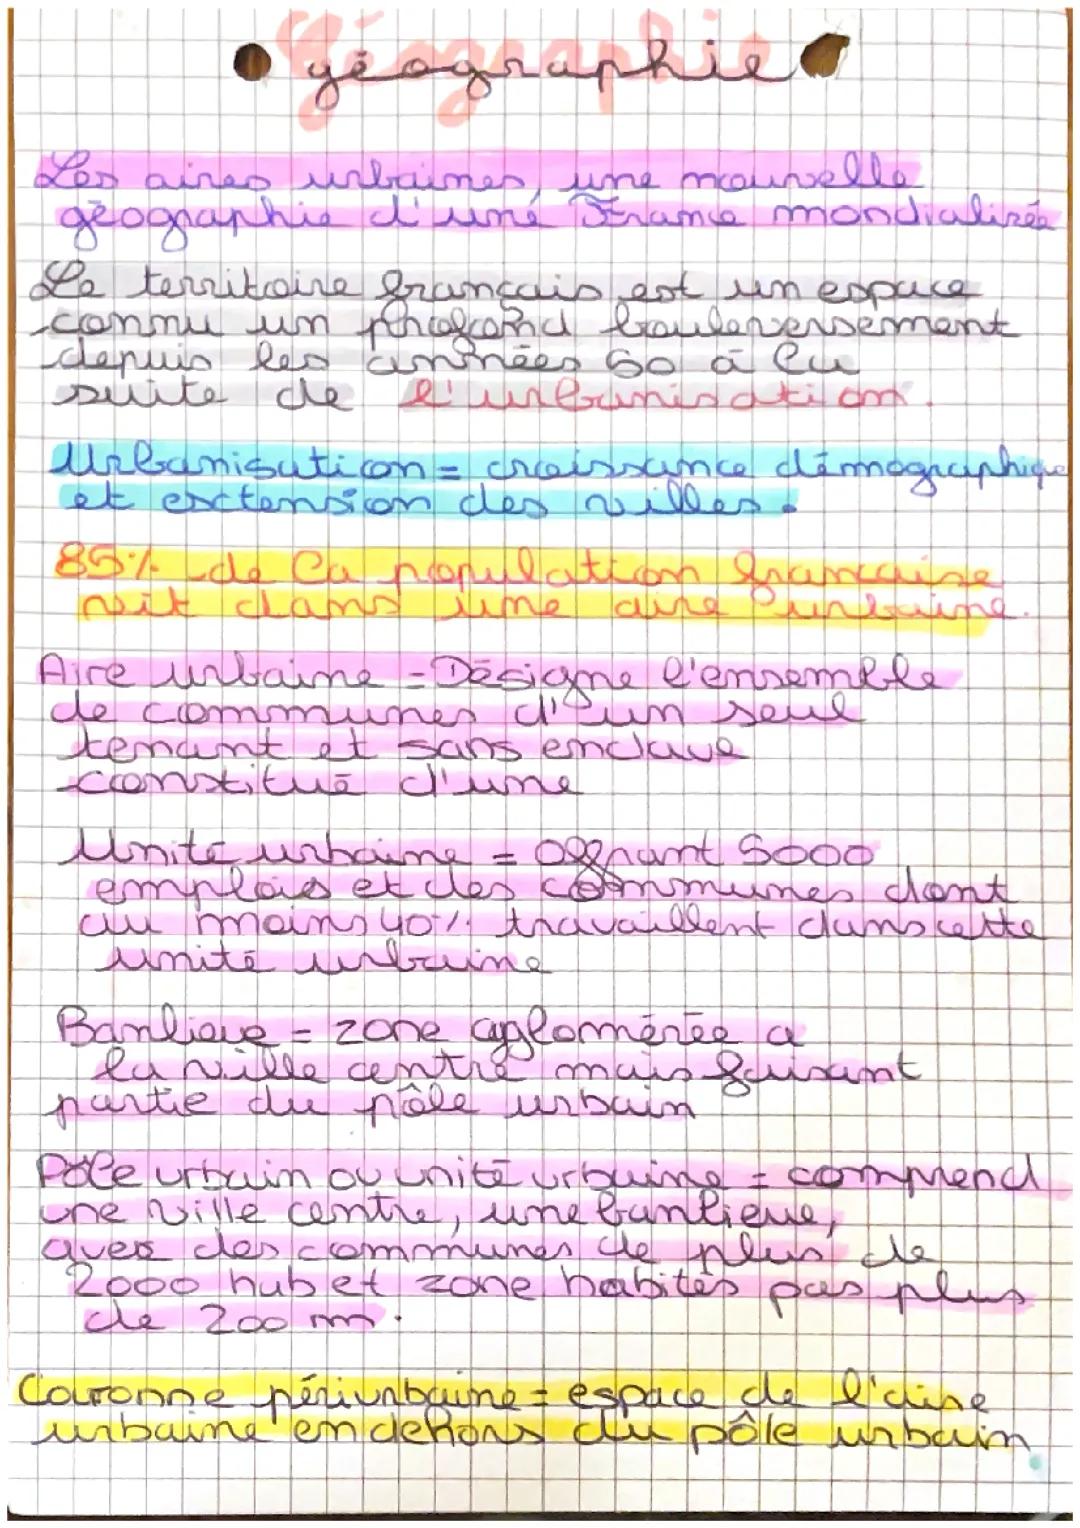 géographie
Les aires urbaines, une nouvelle
géographie d'une France mondialisée
Le territoire français est un espace
connu un profond bouleversement
depuis les années 60 à la
suite de l'urbanisation.
Urbanisation = croissance démographique
et exctension des villes.
85% de la population française
vit dans une aire urbaine.
Aire urbaine = Désigne l'ensemble
de communes d'un seul
tenant et sans enclave
constitué d'une
Unité urbaine = Offrant 5000
emplois et des communes dont
au moins 40% travaillent dans cette
unité urbaine
Banlieue = zone agglomérée a
la ville centre mais faisant
partie du pôle urbain
Pôle urbain ou unité urbaine = comprend
une ville centre, une banlieue,
avec des communes de plus de
2000 hab et zone habités pas plus
de 200 m.
Couronne périurbaine = espace de l'aire
urbaine en dehors du pôle urbain.